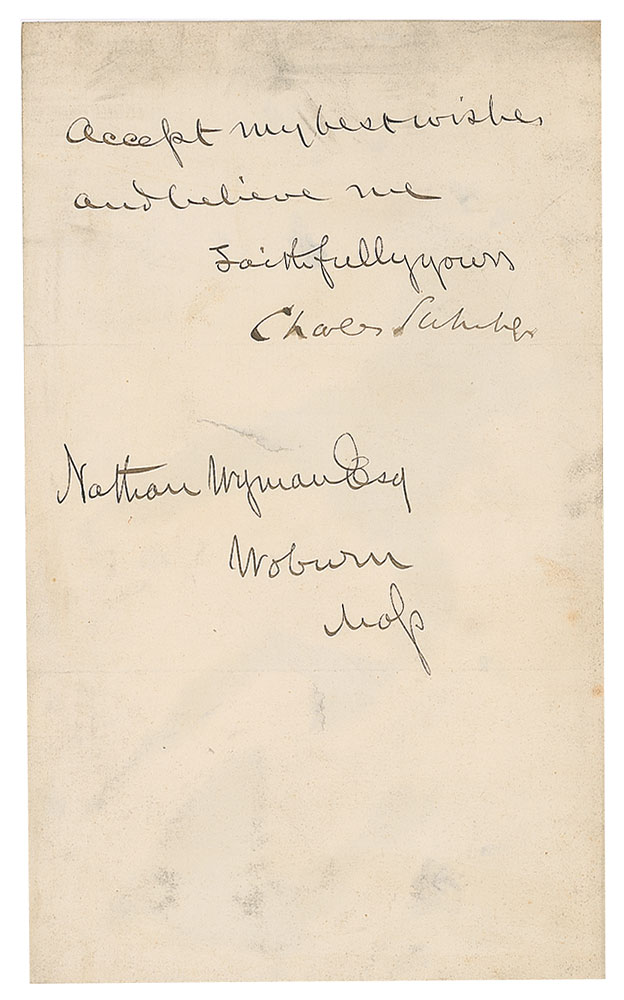 Accept my best wishes
and believe me
Faithfully yours
Charles
Nathan Wyman Esq
Woburn
Mass